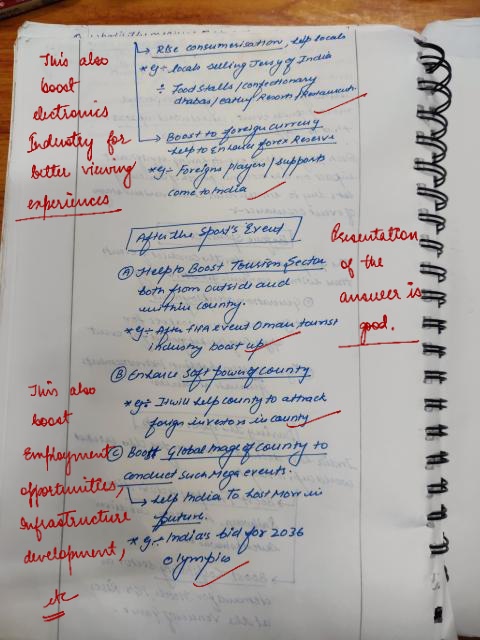 This also
boost
electronics
Industry for
better viewing
experiences
↳ Rise consumerisation, help locals
*eg ÷ locals selling Jersy of India
÷ Food stalls/confectionary
dhabas/eating Rooms/Restaurants
→ Boost to foreign currency
help to Enhance forex Reserve
*eg ÷ Foreigns players/supports
come to India
After the Sport's Event
Ⓐ Help to Boost Tourism Sector
both from outside and
within country.
*eg ÷ After FIFA event Oman tourist
industry boost up
Presentation
of the
answer is
good.
Ⓑ Enhance Soft power of country
*eg ÷ It will help country to attract
foreign investors in country
Ⓒ Boost Global Image of country to
conduct such Mega events.
↳ help India To host More in
future.
*eg ÷ India's bid for 2036
Olympics
This also
boost
Employment
opportunities,
Infrastructure
development,
etc